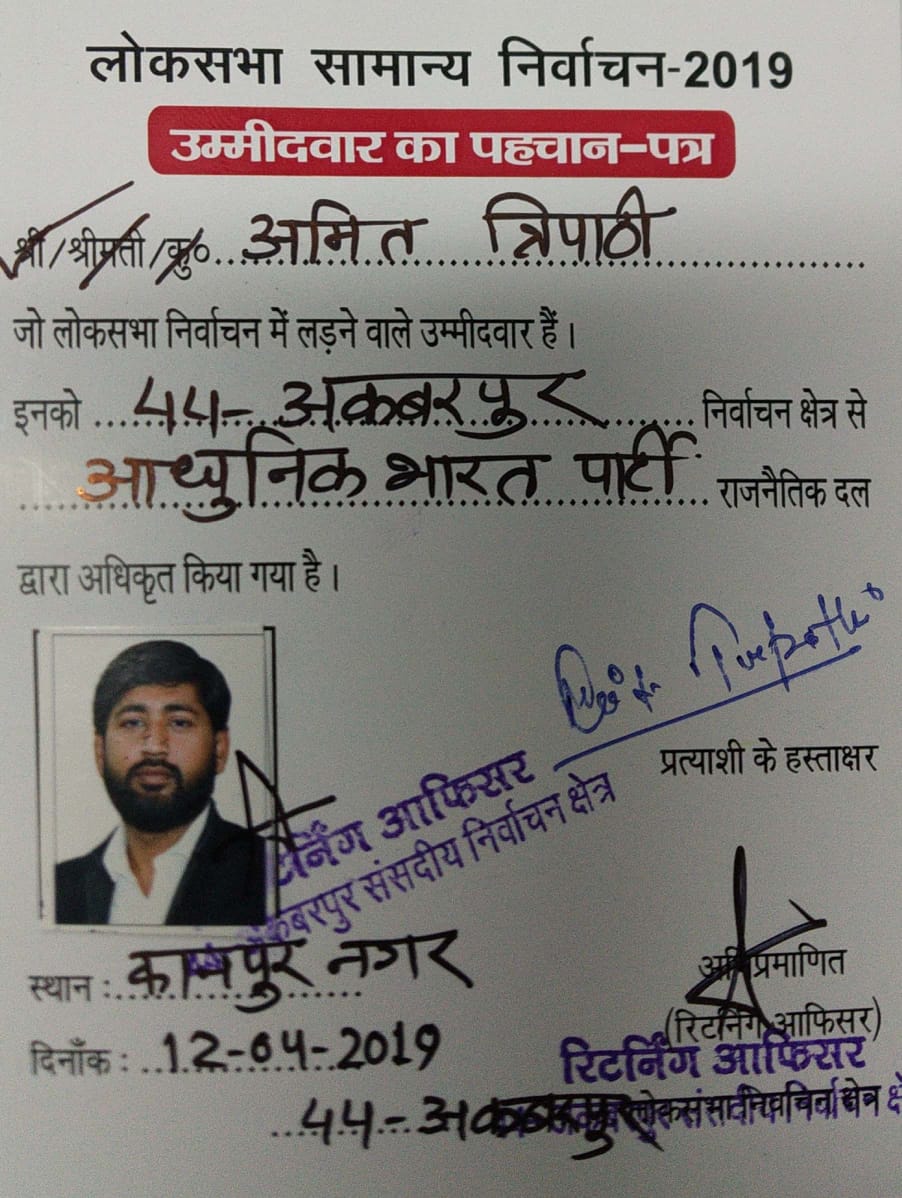 लोकसभा सामान्य निर्वाचन-2019
उम्मीदवार का पहचान-पत्र
श्री/श्रीमती/कु० अमित त्रिपाठी
जो लोकसभा निर्वाचन में लड़ने वाले उम्मीदवार हैं।
इनको 44-अकबरपुर निर्वाचन क्षेत्र से
आधुनिक भारत पार्टी राजनैतिक दल
द्वारा अधिकृत किया गया है।
Tripathi
प्रत्याशी के हस्ताक्षर
रिटर्निंग आफिसर
अकबरपुर संसदीय निर्वाचन क्षेत्र
स्थान : कानपुर नगर
अभिप्रमाणित
(रिटर्निंग आफिसर)
दिनाँक : 12-04-2019
रिटर्निंग आफिसर
44-अकबरपुर